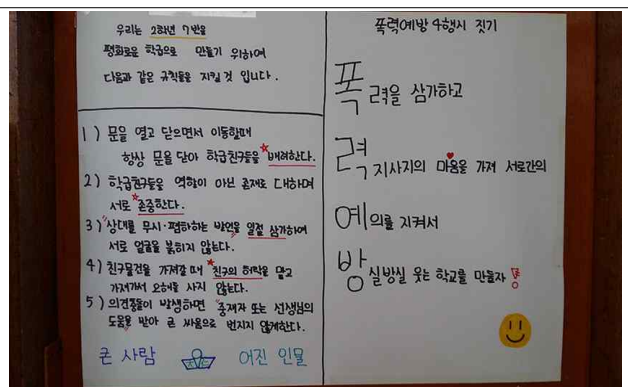 우리는 2학년 7반을
평화로운 학급으로 만들기 위하여
다음과 같은 규칙들을 지킬 것 입니다.
1) 문을 열고 닫으면서 이동할때
항상 문을 닫아 학급친구들을 배려한다.
2) 학급친구들을 역할이 아닌 존재로 대하며
서로 존중한다.
3) 상대를 무시·폄하하는 발언을 일절 삼가하여
서로 얼굴을 붉히지 않는다.
4) 친구물건을 가져갈 때 친구의 허락을 맡고
가져가서 오해를 사지 않는다.
5) 의견충돌이 발생하면 중재자 또는 선생님의
도움을 받아 큰 싸움으로 번지지 않게한다.
큰 사람 어진 인물
폭력예방 4행시 짓기
폭력을 삼가하고
력지사지의 마음을 가져 서로간의
예의를 지켜서
방실방실 웃는 학교를 만들자!